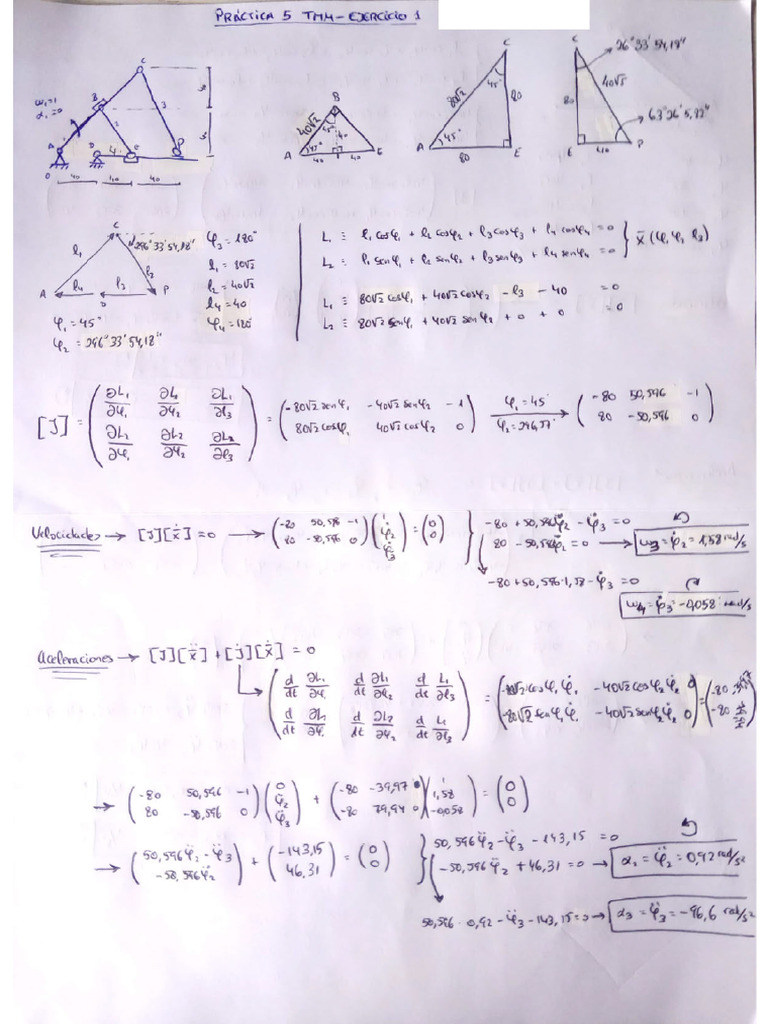 PRÁCTICA 5 TMM - EJERCICIO 1
ω₁=1
α₁=0
A B C D 2 3 4
O 40 40 40
A B E 40√2 45° 45° 40 40 40
A C E 80√2 45° 45° 80 80
C E P 26° 33' 54,18" 80 40√5 63° 26' 5,82" 40
A C D P l₁ l₂ l₃ l₄ 296° 33' 54,18"
φ₃ = 180°
l₁ = 80√2
l₂ = 40√2
l₄ = 40
φ₄ = 180°
φ₁ = 45°
φ₂ = 296° 33' 54,18"
L₁ ≡ l₁ cosφ₁ + l₂ cosφ₂ + l₃ cosφ₃ + l₄ cosφ₄ = 0
L₂ ≡ l₁ senφ₁ + l₂ senφ₂ + l₃ senφ₃ + l₄ senφ₄ = 0 } x̄ (φ₁ φ₂ l₃)
L₁ ≡ 80√2 cosφ₁ + 40√2 cosφ₂ - l₃ - 40 = 0
L₂ ≡ 80√2 senφ₁ + 40√2 sen φ₂ + 0 + 0 = 0
[J] = (∂L₁/∂φ₁ ∂L₁/∂φ₂ ∂L₁/∂l₃ ; ∂L₂/∂φ₁ ∂L₂/∂φ₂ ∂L₂/∂φ₃) = (-80√2 senφ₁ -40√2 senφ₂ -1 ; 80√2 cosφ₁ 40√2 cosφ₂ 0) φ₁ = 45° φ₂ = 296,57° → (-80 50,596 -1 ; 80 -50,596 0)
Velocidades → [J][ẋ] = 0 → (-80 50,596 -1 ; 80 -50,596 0) (1 ; φ̇₂ ; φ̇₃) = (0 ; 0)
-80 + 50,596φ̇₂ - φ̇₃ = 0
80 - 50,596φ̇₂ = 0 → ω₃ = φ̇₂ = 1,58 rad/s
-80 + 50,596·1,58 - φ̇₃ = 0
ω₄ = φ̇₃ = -0,058 rad/s
Aceleraciones → [J][ẍ] + [J̇][ẋ] = 0
(d/dt ∂L₁/∂φ₁ d/dt ∂L₁/∂φ₂ d/dt L₁/∂l₃ ; d/dt ∂L₂/∂φ₁ d/dt ∂L₂/∂φ₂ d/dt L₂/∂l₃) = (-80√2 cosφ₁ φ̇₁ -40√2 cosφ₂ φ̇₂ 0 ; -80√2 senφ₁ φ̇₁ -40√2 senφ₂ φ̇₂ 0) = (-80 ; -80)
→ (-80 50,596 -1 ; 80 -50,596 0) (0 ; φ̈₂ ; φ̈₃) + (-80 -39,97 0 ; -80 79,94 0) (1 ; 1,58 ; -0,058) = (0 ; 0)
→ (50,596φ̈₂ - φ̈₃ ; -50,596φ̈₂) + (-143,15 ; 46,31) = (0 ; 0)
50,596φ̈₂ - φ̈₃ - 143,15 = 0
-50,596φ̈₂ + 46,31 = 0 → α₂ = φ̈₂ = 0,92 rad/s²
50,596 · 0,92 - φ̈₃ - 143,15 = 0 → α₃ = φ̈₃ = -96,6 rad/s²